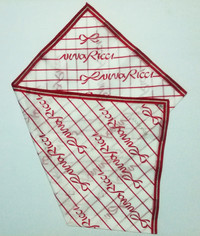 NINA RICCI
NINA RICCI
NINA RICCI
NINA RICCI
NINA RICCI
NINA RICCI